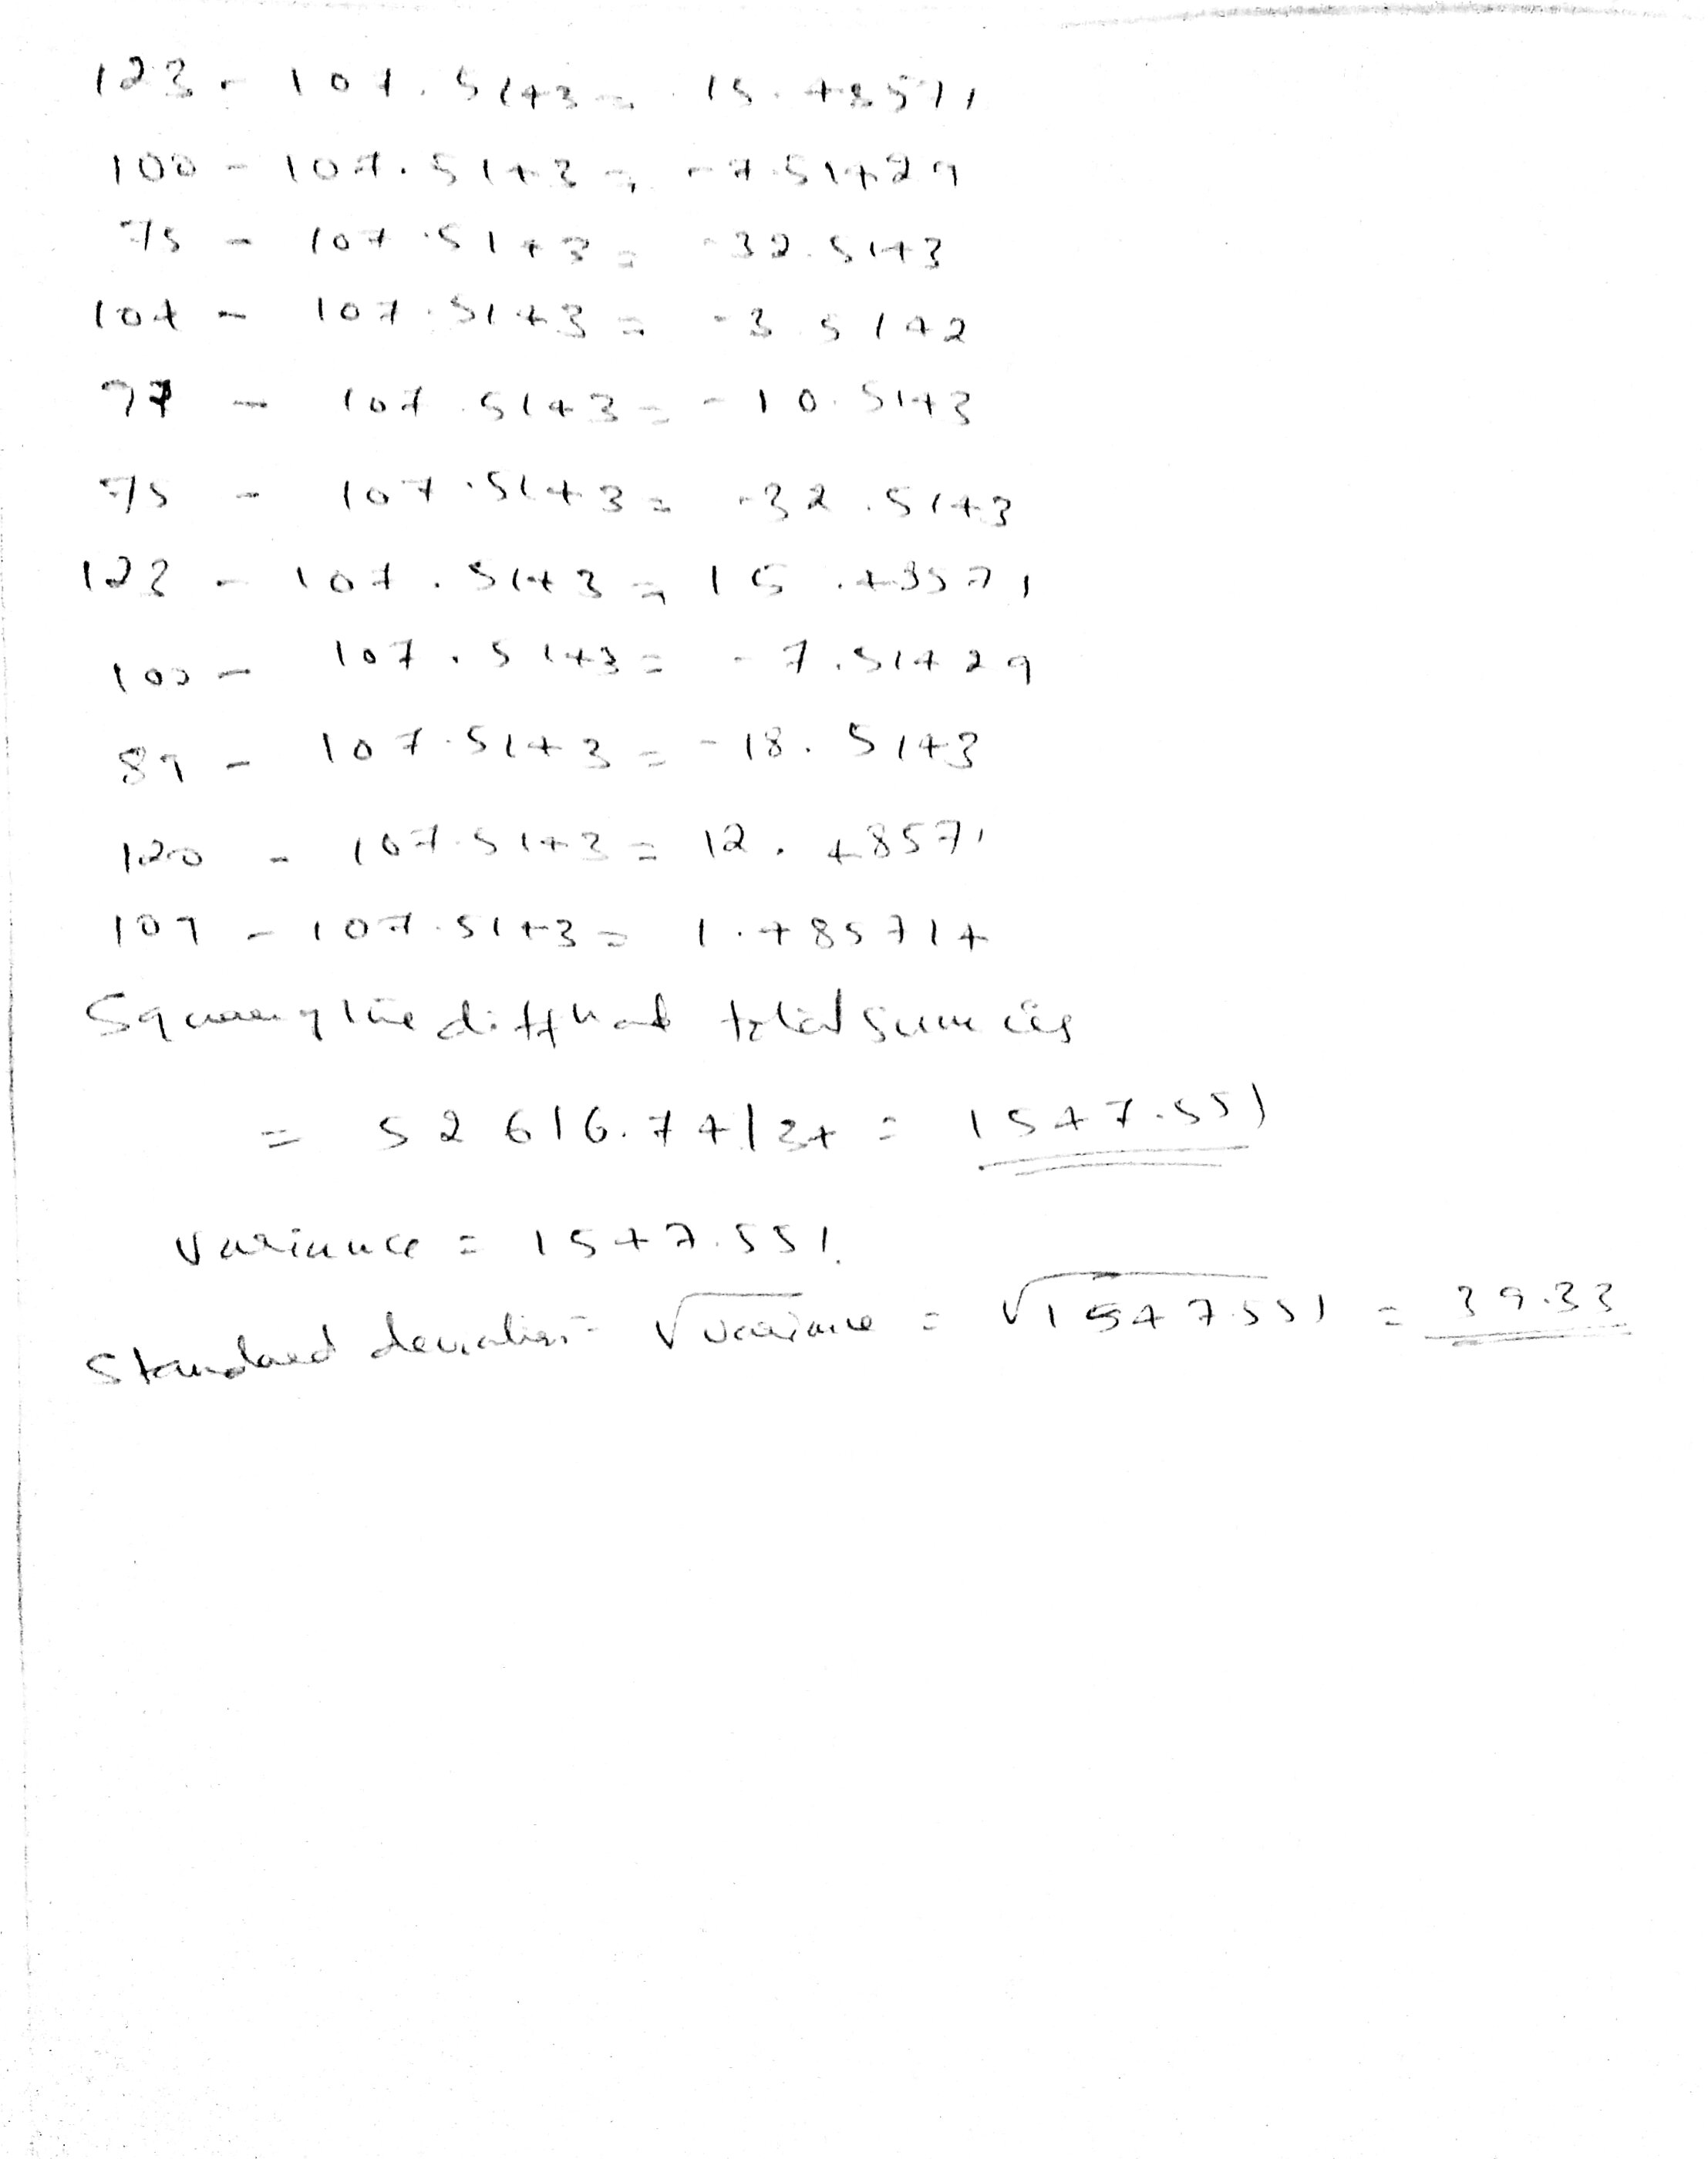 123 - 107.5143 = 15.48571
100 - 107.5143 = -7.51429
75 - 107.5143 = -32.5143
104 - 107.5143 = -3.5142
97 - 107.5143 = -10.5143
75 - 107.5143 = -32.5143
123 - 107.5143 = 15.48571
100 - 107.5143 = -7.51429
89 - 107.5143 = -18.5143
120 - 107.5143 = 12.48571
109 - 107.5143 = 1.485714
Squaring the diff total sum
= 52616.74/34 = 1547.551
Variance = 1547.551
Standard deviation = √variance = √1547.551 = 39.33